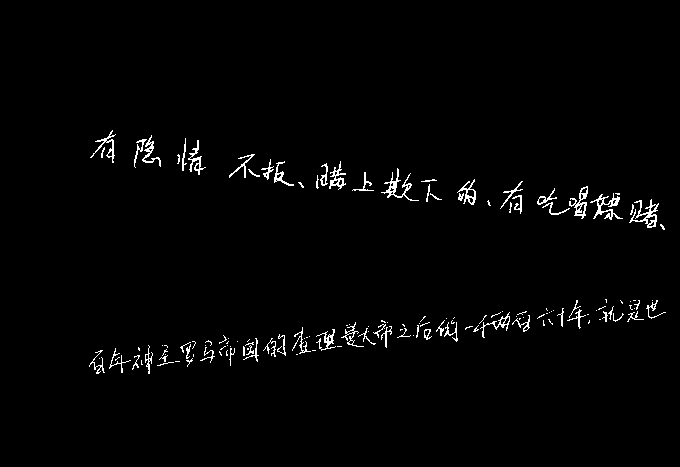 有隐情不报、瞒上欺下的、有吃喝嫖赌、
百年神圣罗马帝国的查理曼大帝之后的一千两百六十年,就是世